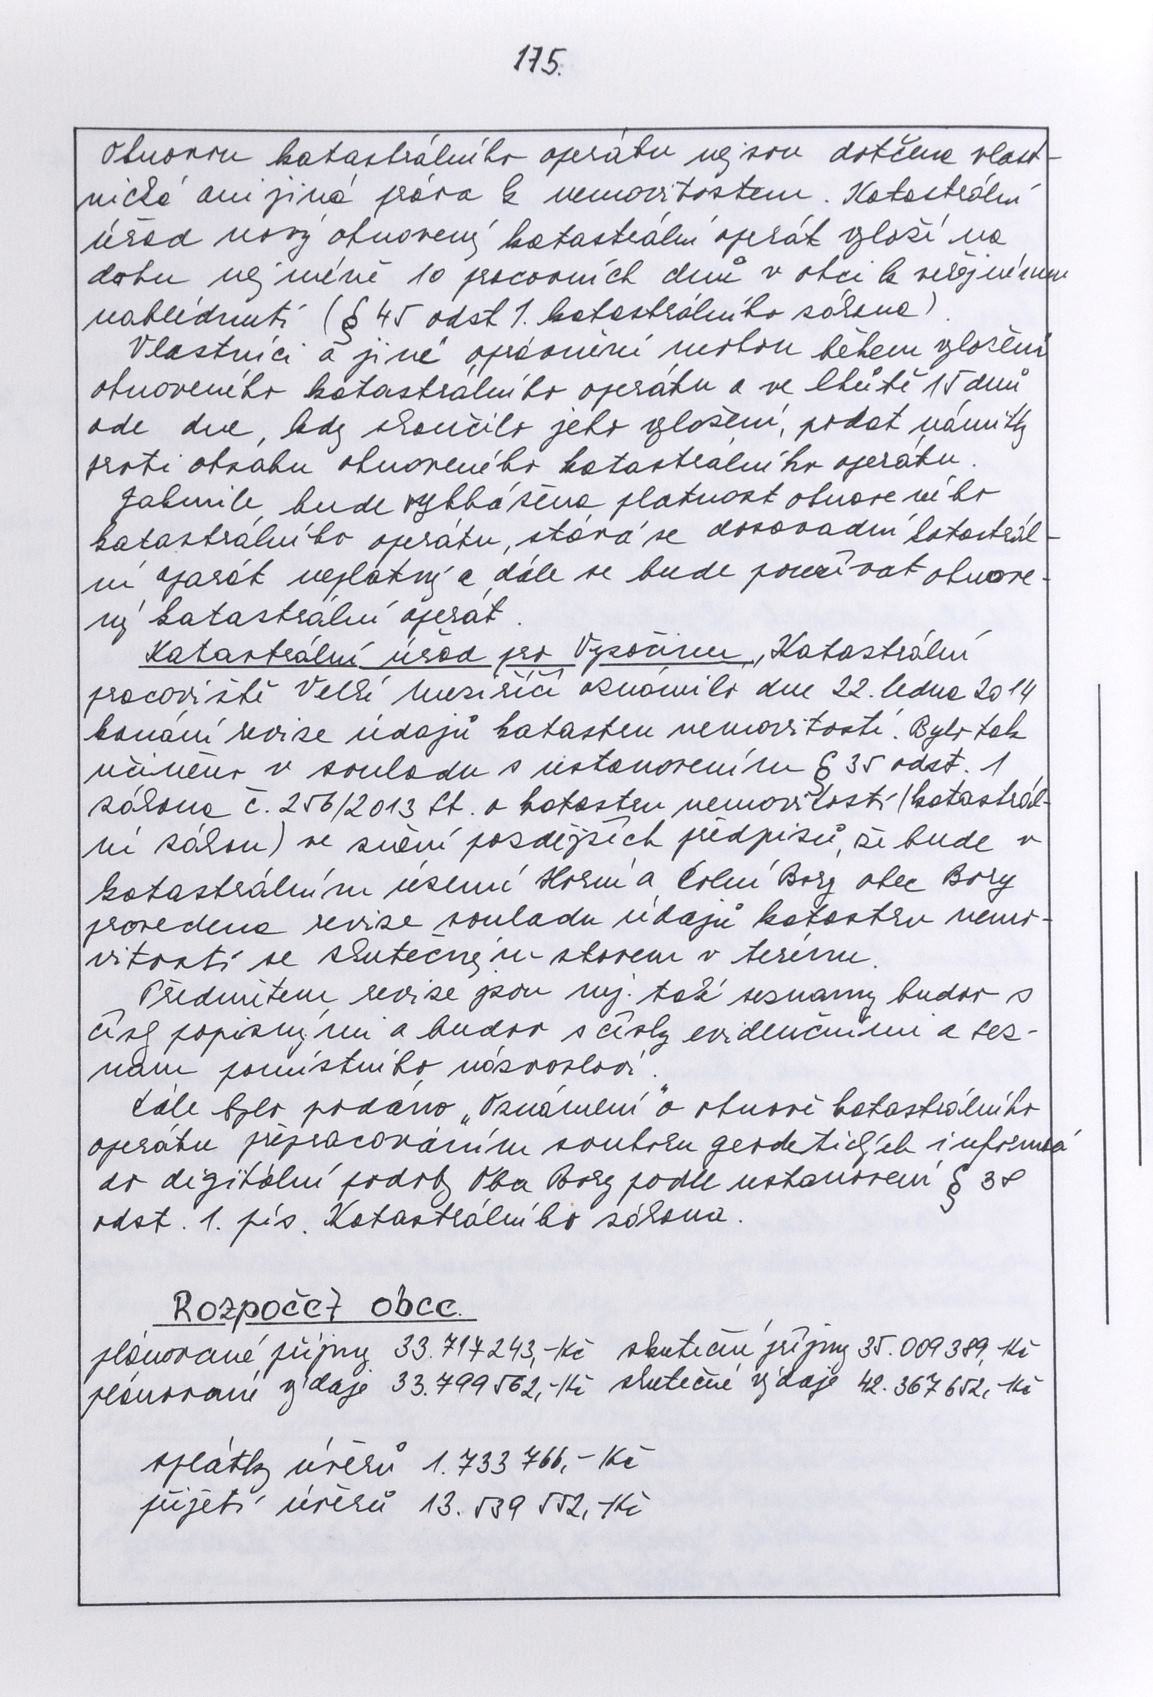 175.
Obnovou katastrálního operátu nejsou dotčena vlast-
nická ani jiná práva k nemovitostem. Katastrální
úřad nový obnovený katastrální operát vyloží na
dobu nejméně 10 pracovních dnů v obci k veřejnému
nahlédnutí (§ 45 odst 1. katastrálního zákona).
Vlastníci a jiné oprávnění mohou během vyložení
obnoveného katastrálního operátu a ve lhůtě 15 dnů
ode dne, kdy skončilo jeho vyložení, podat námitky
proti obsahu obnoveného katastrálního operátu.
Jakmile bude vyhlášena platnost obnoveného
katastrálního operátu, stává se dosavadní katastrál-
ní operát neplatný a dále se bude používat obnove-
ný katastrální operát.
Katastrální úřad pro Vysočinu, Katastrální
pracoviště Velké Meziříčí oznámilo dne 22. ledna 2014
konání revize údajů katastru nemovitostí. Bylo tak
učiněno v souladu s ustanovením § 35 odst. 1
zákona č. 256/2013 Sb. o katastru nemovitostí (katastrál-
ní zákon) ve znění pozdějších předpisů, že bude v
katastrálním území Horní a Dolní Bory obec Bory
provedena revize souladu údajů katastru nemo-
vitostí se skutečným stavem v terénu.
Předmětem revize jsou nyj. také seznamy budov s
čísly popisnými a budov s čísly evidenčními a sez-
nam pomístního názvosloví.
Dále bylo podáno „Oznámení" o obnově katastrálního
operátu přepracováním souboru geodetických informací
do digitální podoby Oba Bory podle ustanovení § 38
odst. 1. pís. Katastrálního zákona.
Rozpočet obce.
plánované příjmy 33.717243,-Kč skuteční příjmy 35.009389,-Kč
plánované výdaje 33.799562,-Kč skutečné výdaje 42.367652,-Kč
splátky úvěrů 1.733 766,- Kč
přijetí úvěrů 13.539 552,-Kč